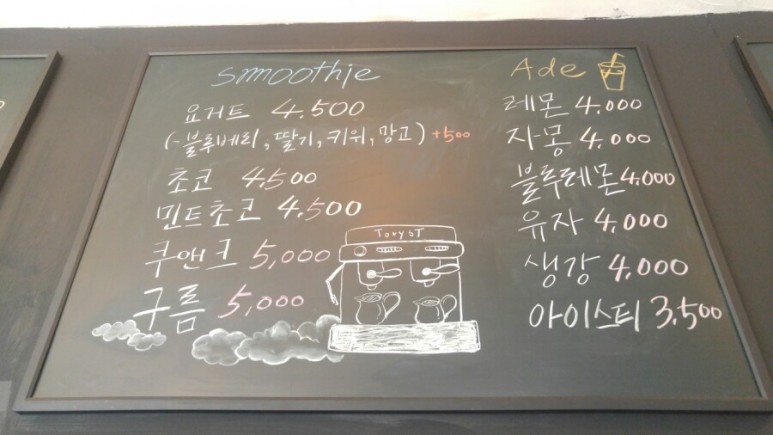 smoothie
요거트 4.500
(-블루베리, 딸기, 키위, 망고) +500
초코 4,500
민트초코 4.500
쿠앤크 5,000
구름 5,000
Toryst
Ade
레몬 4.000
자몽 4.000
블루레몬 4,000
유자 4,000
생강 4,000
아이스티 3,500